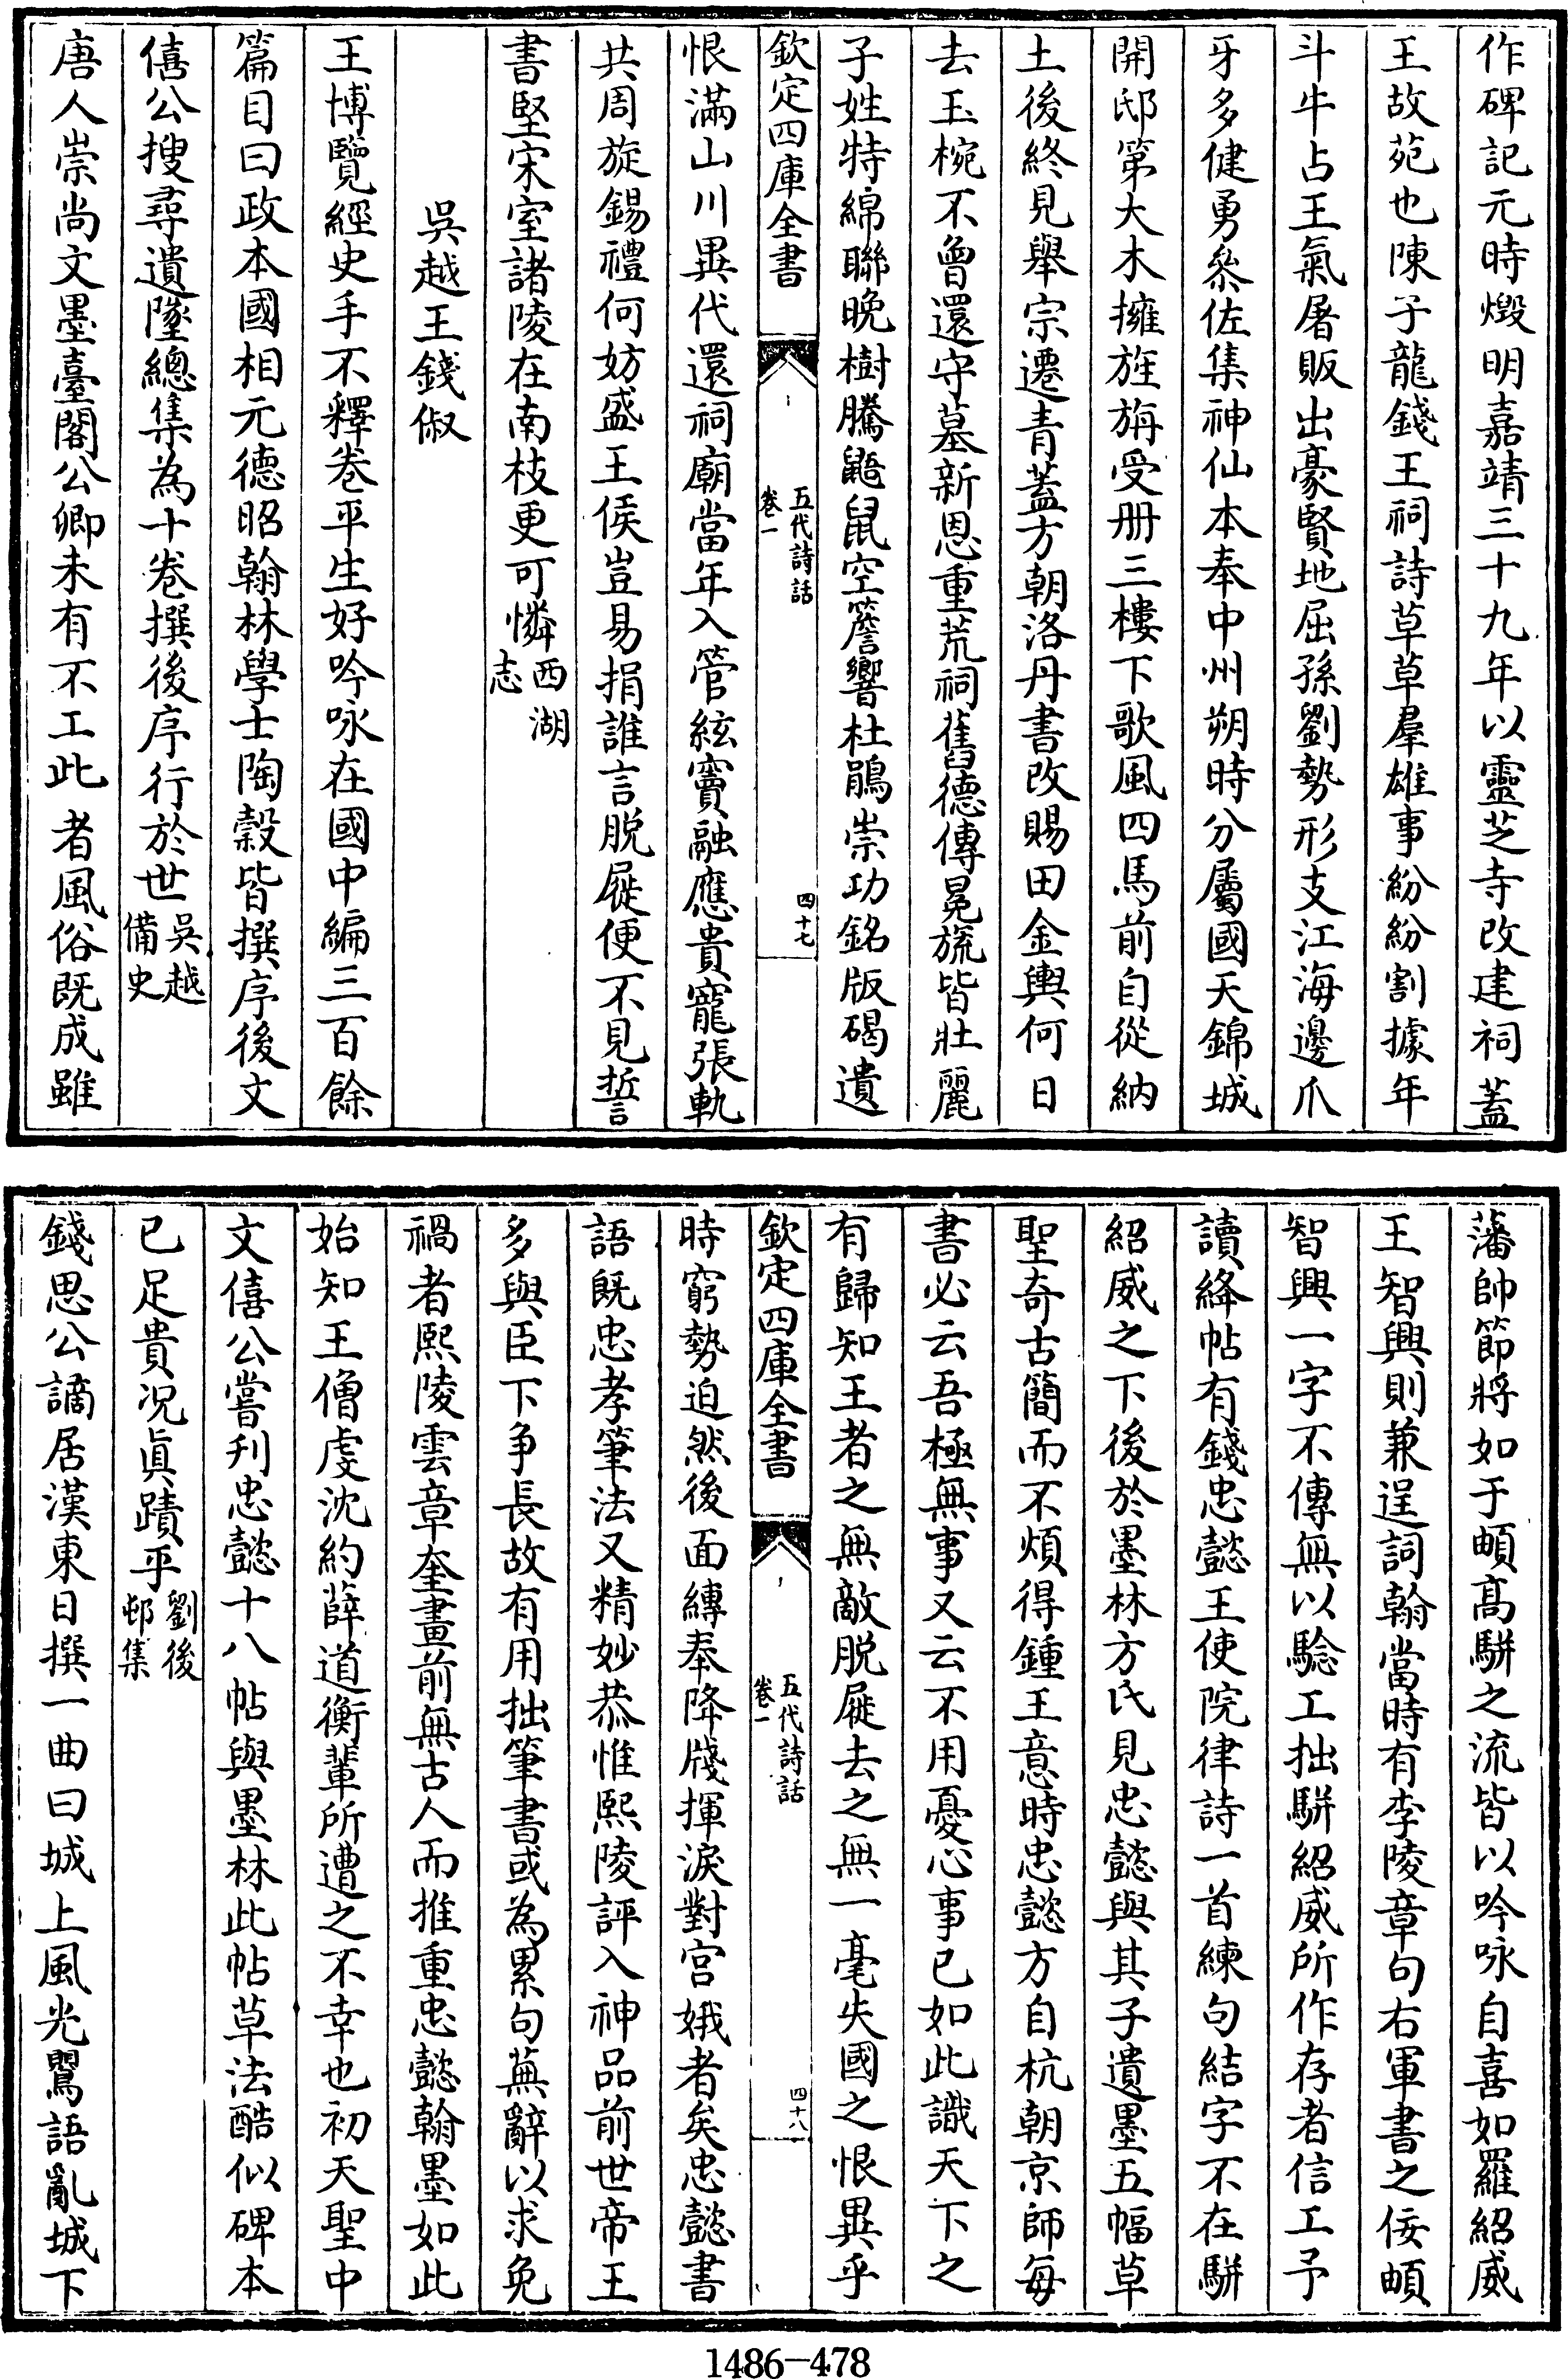 作碑記元時燬明嘉靖三十九年以靈芝寺改建祠蓋
王故苑也陳子龍錢王祠詩草草羣雄事紛紛割據年
斗牛占王氣屠販出豪賢地屈孫劉勢形支江海邊爪
牙多健勇叅佐集神仙本奉中州朔時分屬國天錦城
開邸第大木擁旌旃受册三樓下歌風四馬前自從納
土後終見舉宗遷青蓋方朝洛丹書改賜田金輿何日
去玉椀不曾還守墓新恩重荒祠舊德傳冕旒皆壯麗
子姓特綿聯晚樹騰鼯鼠空簷響杜鵑崇功銘版碣遺
欽定四庫全書
五代詩話
卷一
四十七
恨滿山川異代還祠廟當年入管絃竇融應貴寵張軌
共周旋錫禮何妨盛王侯豈易捐誰言脱屣便不見誓
書堅宋室諸陵在南枝更可憐西湖
志
吳越王錢俶
王博覽經史手不釋卷平生好吟咏在國中編三百餘
篇目曰政本國相元德昭翰林學士陶穀皆撰序後文
僖公搜尋遺墜總集為十卷撰後序行於世吳越
備史
唐人崇尚文墨臺閣公卿未有不工此者風俗既成雖
藩帥節將如于頔高駢之流皆以吟咏自喜如羅紹威
王智興則兼逞詞翰當時有李陵章句右軍書之佞頔
智興一字不傳無以驗工拙駢紹威所作存者信工予
讀絳帖有錢忠懿王使院律詩一首練句結字不在駢
紹威之下後於墨林方氏見忠懿與其子遺墨五幅草
聖奇古簡而不煩得鍾王意時忠懿方自杭朝京師每
書必云吾極無事又云不用憂心事已如此識天下之
有歸知王者之無敵脱屣去之無一毫失國之恨異乎
欽定四庫全書
五代詩話
卷一
四十八
時窮勢迫然後面縳奉降牋揮淚對宮娥者矣忠懿書
語既忠孝筆法又精妙恭惟熙陵評入神品前世帝王
多與臣下争長故有用拙筆書或為累句蕪辭以求免
禍者熙陵雲章奎畫前無古人而推重忠懿翰墨如此
始知王僧虔沈約薛道衡輩所遭之不幸也初天聖中
文僖公嘗刋忠懿十八帖與墨林此帖草法酷似碑本
已足貴况眞蹟乎劉後
邨集
錢思公謫居漢東日撰一曲曰城上風光鸎語亂城下
1486—478